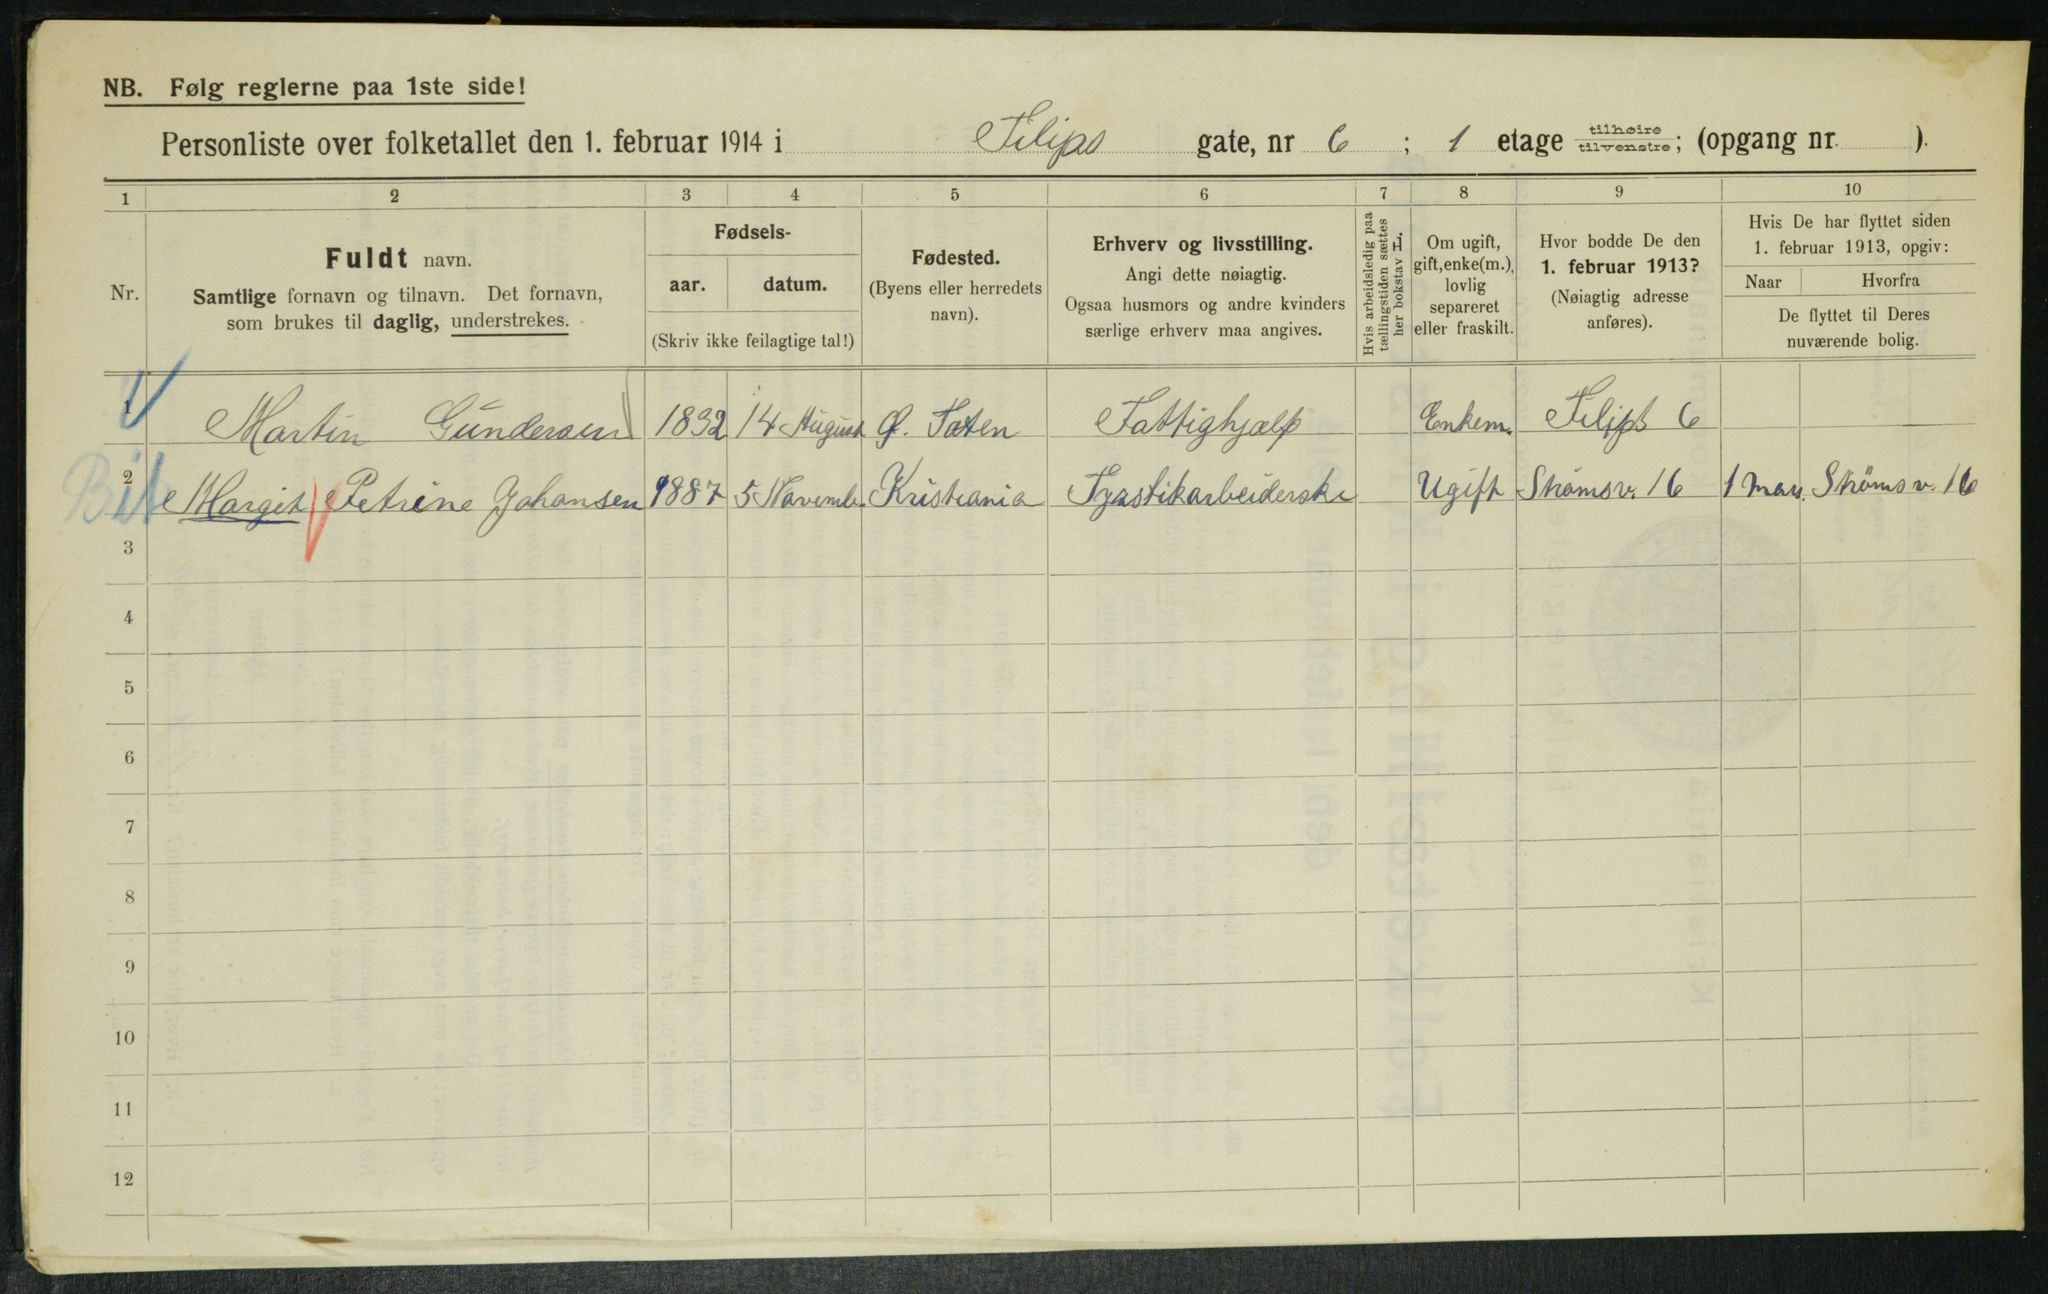 NB. Følg reglerne paa 1ste side!
Personliste over folketallet den 1. februar 1914 i Filips gate, nr 6 ; 1 etage tilhøire tilvenstre; (opgang nr. ).
1 2 3 4 5 6 7 8 9 10
Nr.
Fuldt navn.
Samtlige fornavn og tilnavn. Det fornavn,
som brukes til daglig, understrekes.
Fødsels-
aar. datum.
(Skriv ikke feilagtige tal!)
Fødested.
(Byens eller herredets
navn).
Erhverv og livsstilling.
Angi dette nøiagtig.
Ogsaa husmors og andre kvinders
særlige erhverv maa angives.
Hvis arbeidsledig paa
tællingstiden sættes
her bokstav L.
Om ugift,
gift, enke(m.),
lovlig
separeret
eller fraskilt.
Hvor bodde De den
1. februar 1913?
(Nøiagtig adresse
anføres).
Hvis De har flyttet siden
1. februar 1913, opgiv:
Naar Hvorfra
De flyttet til Deres
nuværende bolig.
1 Martin Gundersen 1832 14 August Ø. Toten Fattighjælp Enkem. Filips 6
2 Margit Petrine Johansen 1887 5 Novemb. Kristiania Fyrstikarbeiderske Ugift Strømsv. 16 1 mars. Strømsv. 16
3
4
5
6
7
8
9
10
11
12